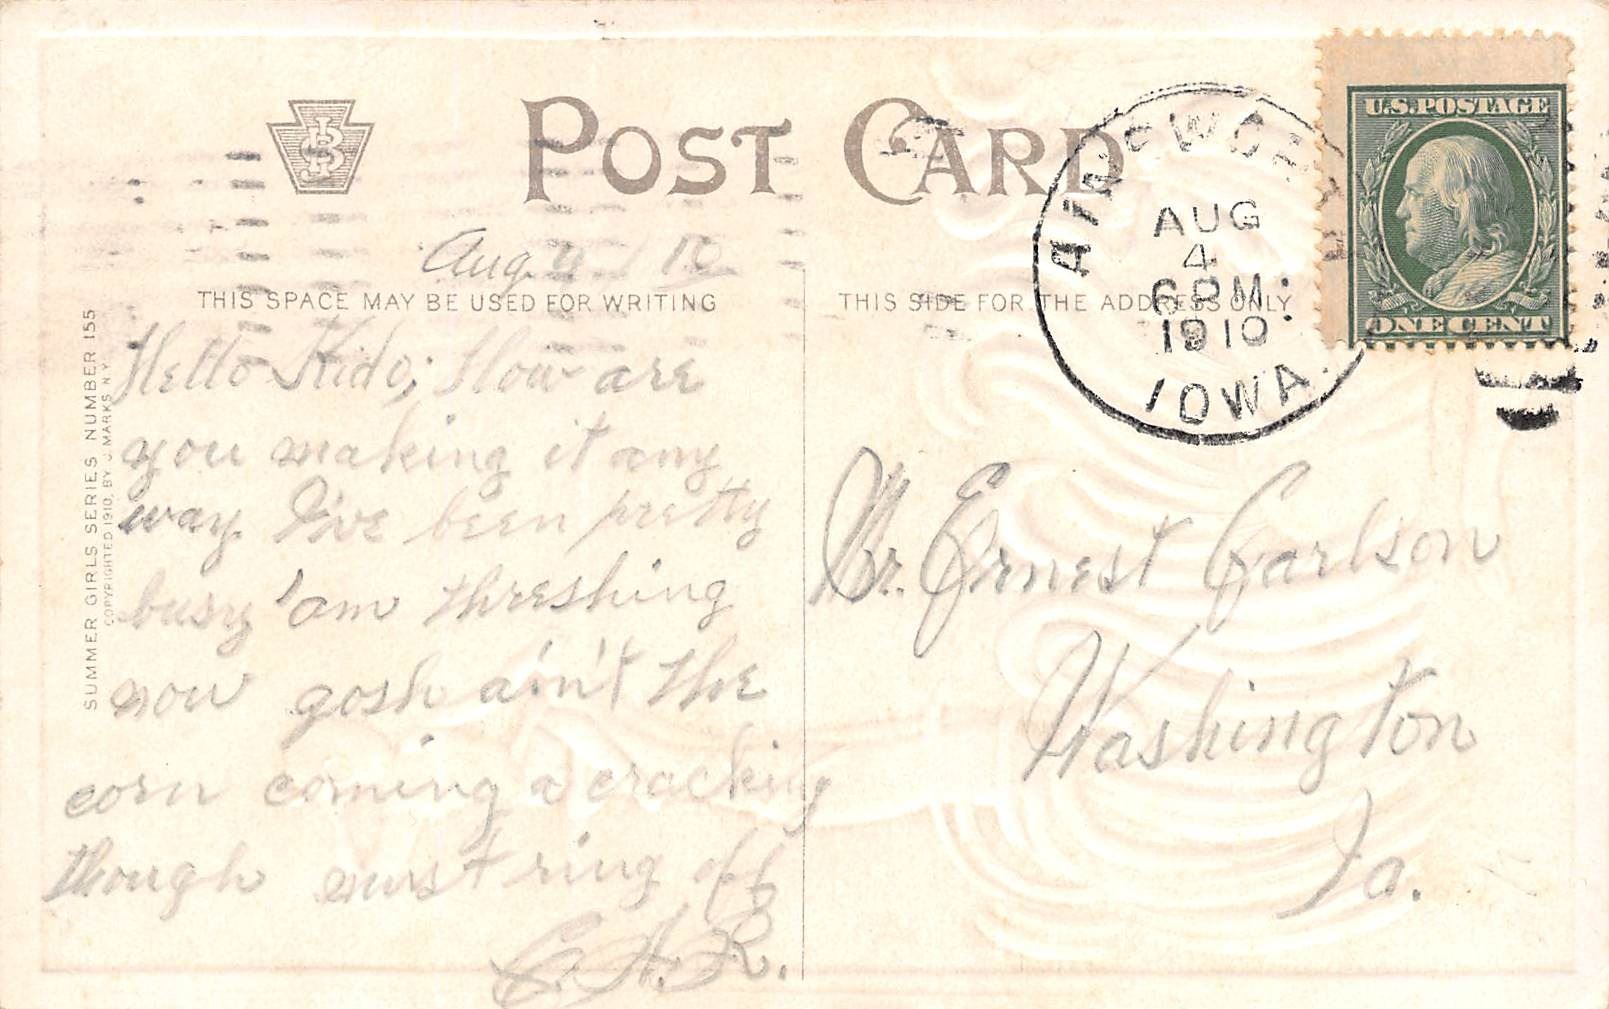 POST CARD
JSB
U.S.POSTAGE
ONE CENT
AINSWORTH
AUG
4
6 PM
1910
IOWA.
Aug 4 10
THIS SPACE MAY BE USED FOR WRITING
THIS SIDE FOR THE ADDRESS ONLY
SUMMER GIRLS SERIES NUMBER 155
COPYRIGHTED 1910, BY J. MARKS N.Y.
Hello Kido; How are
you making it any
way. I've been pretty
busy 'am threshing
now gosh ain't the
corn coming a cracking
though must ring off
C.H.R.
Mr. Ernest Carlson
Washington
Ia.